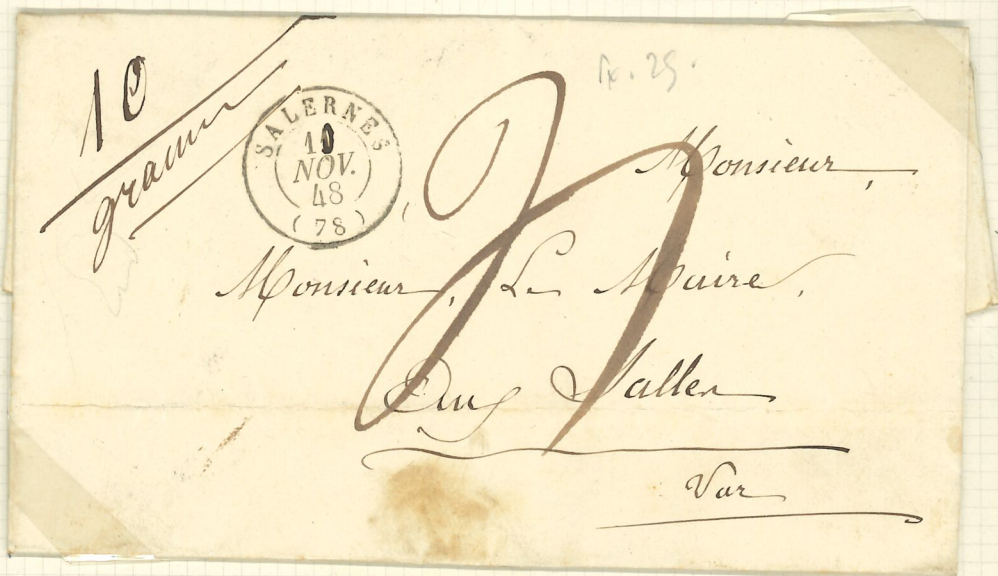 10
grammes
fx. 25.
SALERNES
10
NOV.
48
(78)
Monsieur,
Monsieur, Le Maire,
Aux Salles
Var